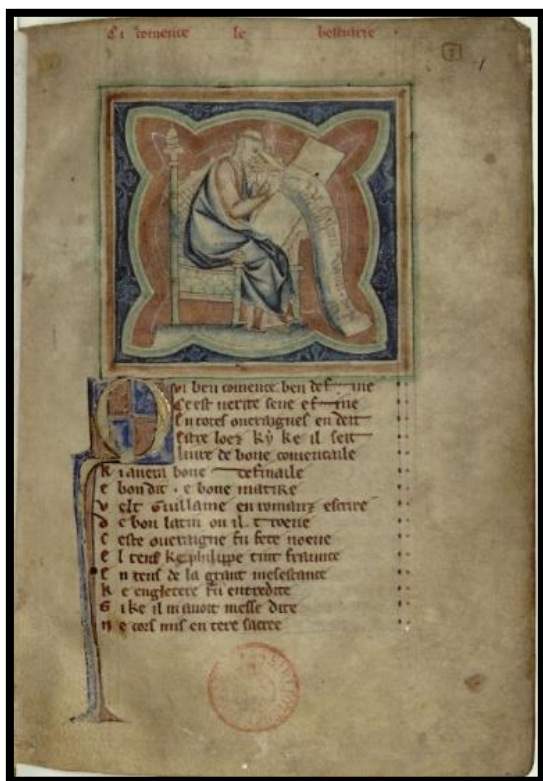 Ci comence le bestiaire
1
Qui ben comence ben define
C eest verite seue e fine
E n totes oueraignes en deit
E stre loez ky ke il seit
k i auera bone definaile
e bon dit . e bone matire
v elt Guillame en romanz escrire
d e bon latin ou il troeue
C este oueraigne fu fete noeue
e l tens ke philippe tint fraunce
E n tens de la grant mesestance
k e engletere fu entredite
S i ke il ni auoit messe dite
n e cors mis en tere sacree